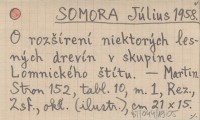 SOMORA Július 1958.
O rozšírení niektorých les-
ných drevín v skupine
Lomnického štítu. — Martin
Stron 152, tabl. 10, m. 1, Rez.,
2sf., okł. (ilustr.), cm 21 x 15.